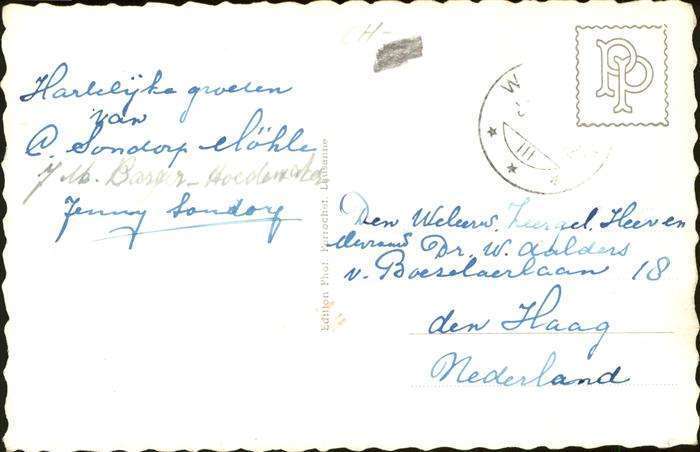 CH-
Hartelijke groeten
van
C. Sondorp Möhle
J. M.
Jenny Sondorp
Edition Phot. Perrochet, Lausanne
PP
W
III
Den Weleerw. Zeergel. Heer en
Mevrouw Dr. W. Aalders
v. Boeselaerlaan 18
den Haag
Nederland